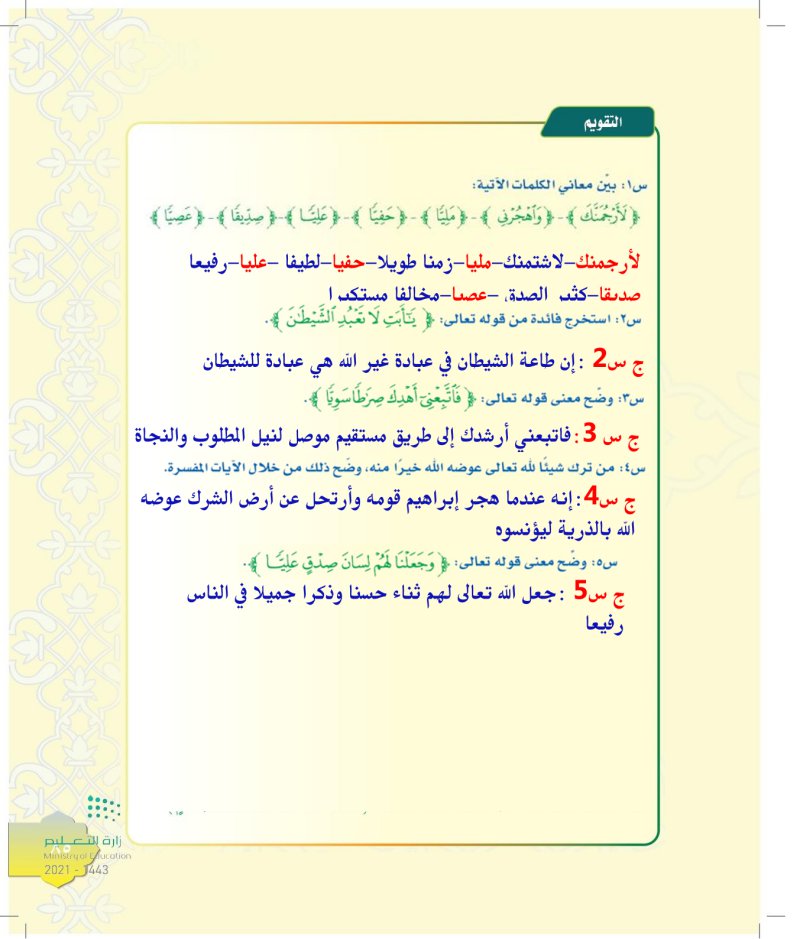 التقويم
س١: بيّن معاني الكلمات الآتية:
﴿ لَأَرْجُمَنَّكَ ﴾ - ﴿ وَاهْجُرْنِي ﴾ - ﴿ مَلِيًّا ﴾ - ﴿ حَفِيًّا ﴾ - ﴿ عَلِيًّا ﴾ - ﴿ صِدِّيقًا ﴾ - ﴿ عَصِيًّا ﴾
لأرجمنك–لاشتمنك–مليا–زمنا طويلا–حفيا–لطيفا –عليا–رفيعا
صديقا–كثير الصدق –عصيا–مخالفا مستكبرا
س٢: استخرج فائدة من قوله تعالى: ﴿ يَٰٓأَبَتِ لَا تَعْبُدِ ٱلشَّيْطَٰنَ ﴾.
ج س2 :إن طاعة الشيطان في عبادة غير الله هي عبادة للشيطان
س٣: وضّح معنى قوله تعالى: ﴿ فَٱتَّبِعْنِىٓ أَهْدِكَ صِرَٰطًا سَوِيًّا ﴾.
ج س 3 :فاتبعني أرشدك إلى طريق مستقيم موصل لنيل المطلوب والنجاة
س٤: من ترك شيئًا لله تعالى عوضه الله خيرًا منه، وضّح ذلك من خلال الآيات المفسرة.
ج س4 :إنه عندما هجر إبراهيم قومه وأرتحل عن أرض الشرك عوضه
الله بالذرية ليؤنسوه
س٥: وضّح معنى قوله تعالى: ﴿ وَجَعَلْنَا لَهُمْ لِسَانَ صِدْقٍ عَلِيًّا ﴾.
ج س5 :جعل الله تعالى لهم ثناء حسنا وذكرا جميلا في الناس
رفيعا
وزارة التعليم
٨٥
Ministry of Education
2021 - 1443